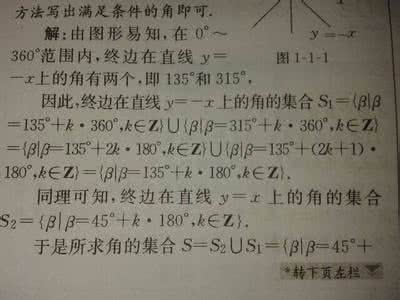 方法写出满足条件的角即可.
解:由图形易知,在 0°～
360°范围内,终边在直线 y=
-x上的角有两个,即 135°和 315°,
y=-x
图 1-1-1
因此,终边在直线 y=-x 上的角的集合 S₁={β|β
=135°+k·360°,k∈Z}∪{β|β=315°+k·360°,k∈Z}
={β|β=135°+2k·180°,k∈Z}∪{β|β=135°+(2k+1)·
180°,k∈Z}={β|β=135°+k·180°,k∈Z}.
同理可知,终边在直线 y=x 上的角的集合
S₂={β|β=45°+k·180°,k∈Z}.
于是所求角的集合 S=S₂∪S₁={β|β=45°+
*转下页左栏